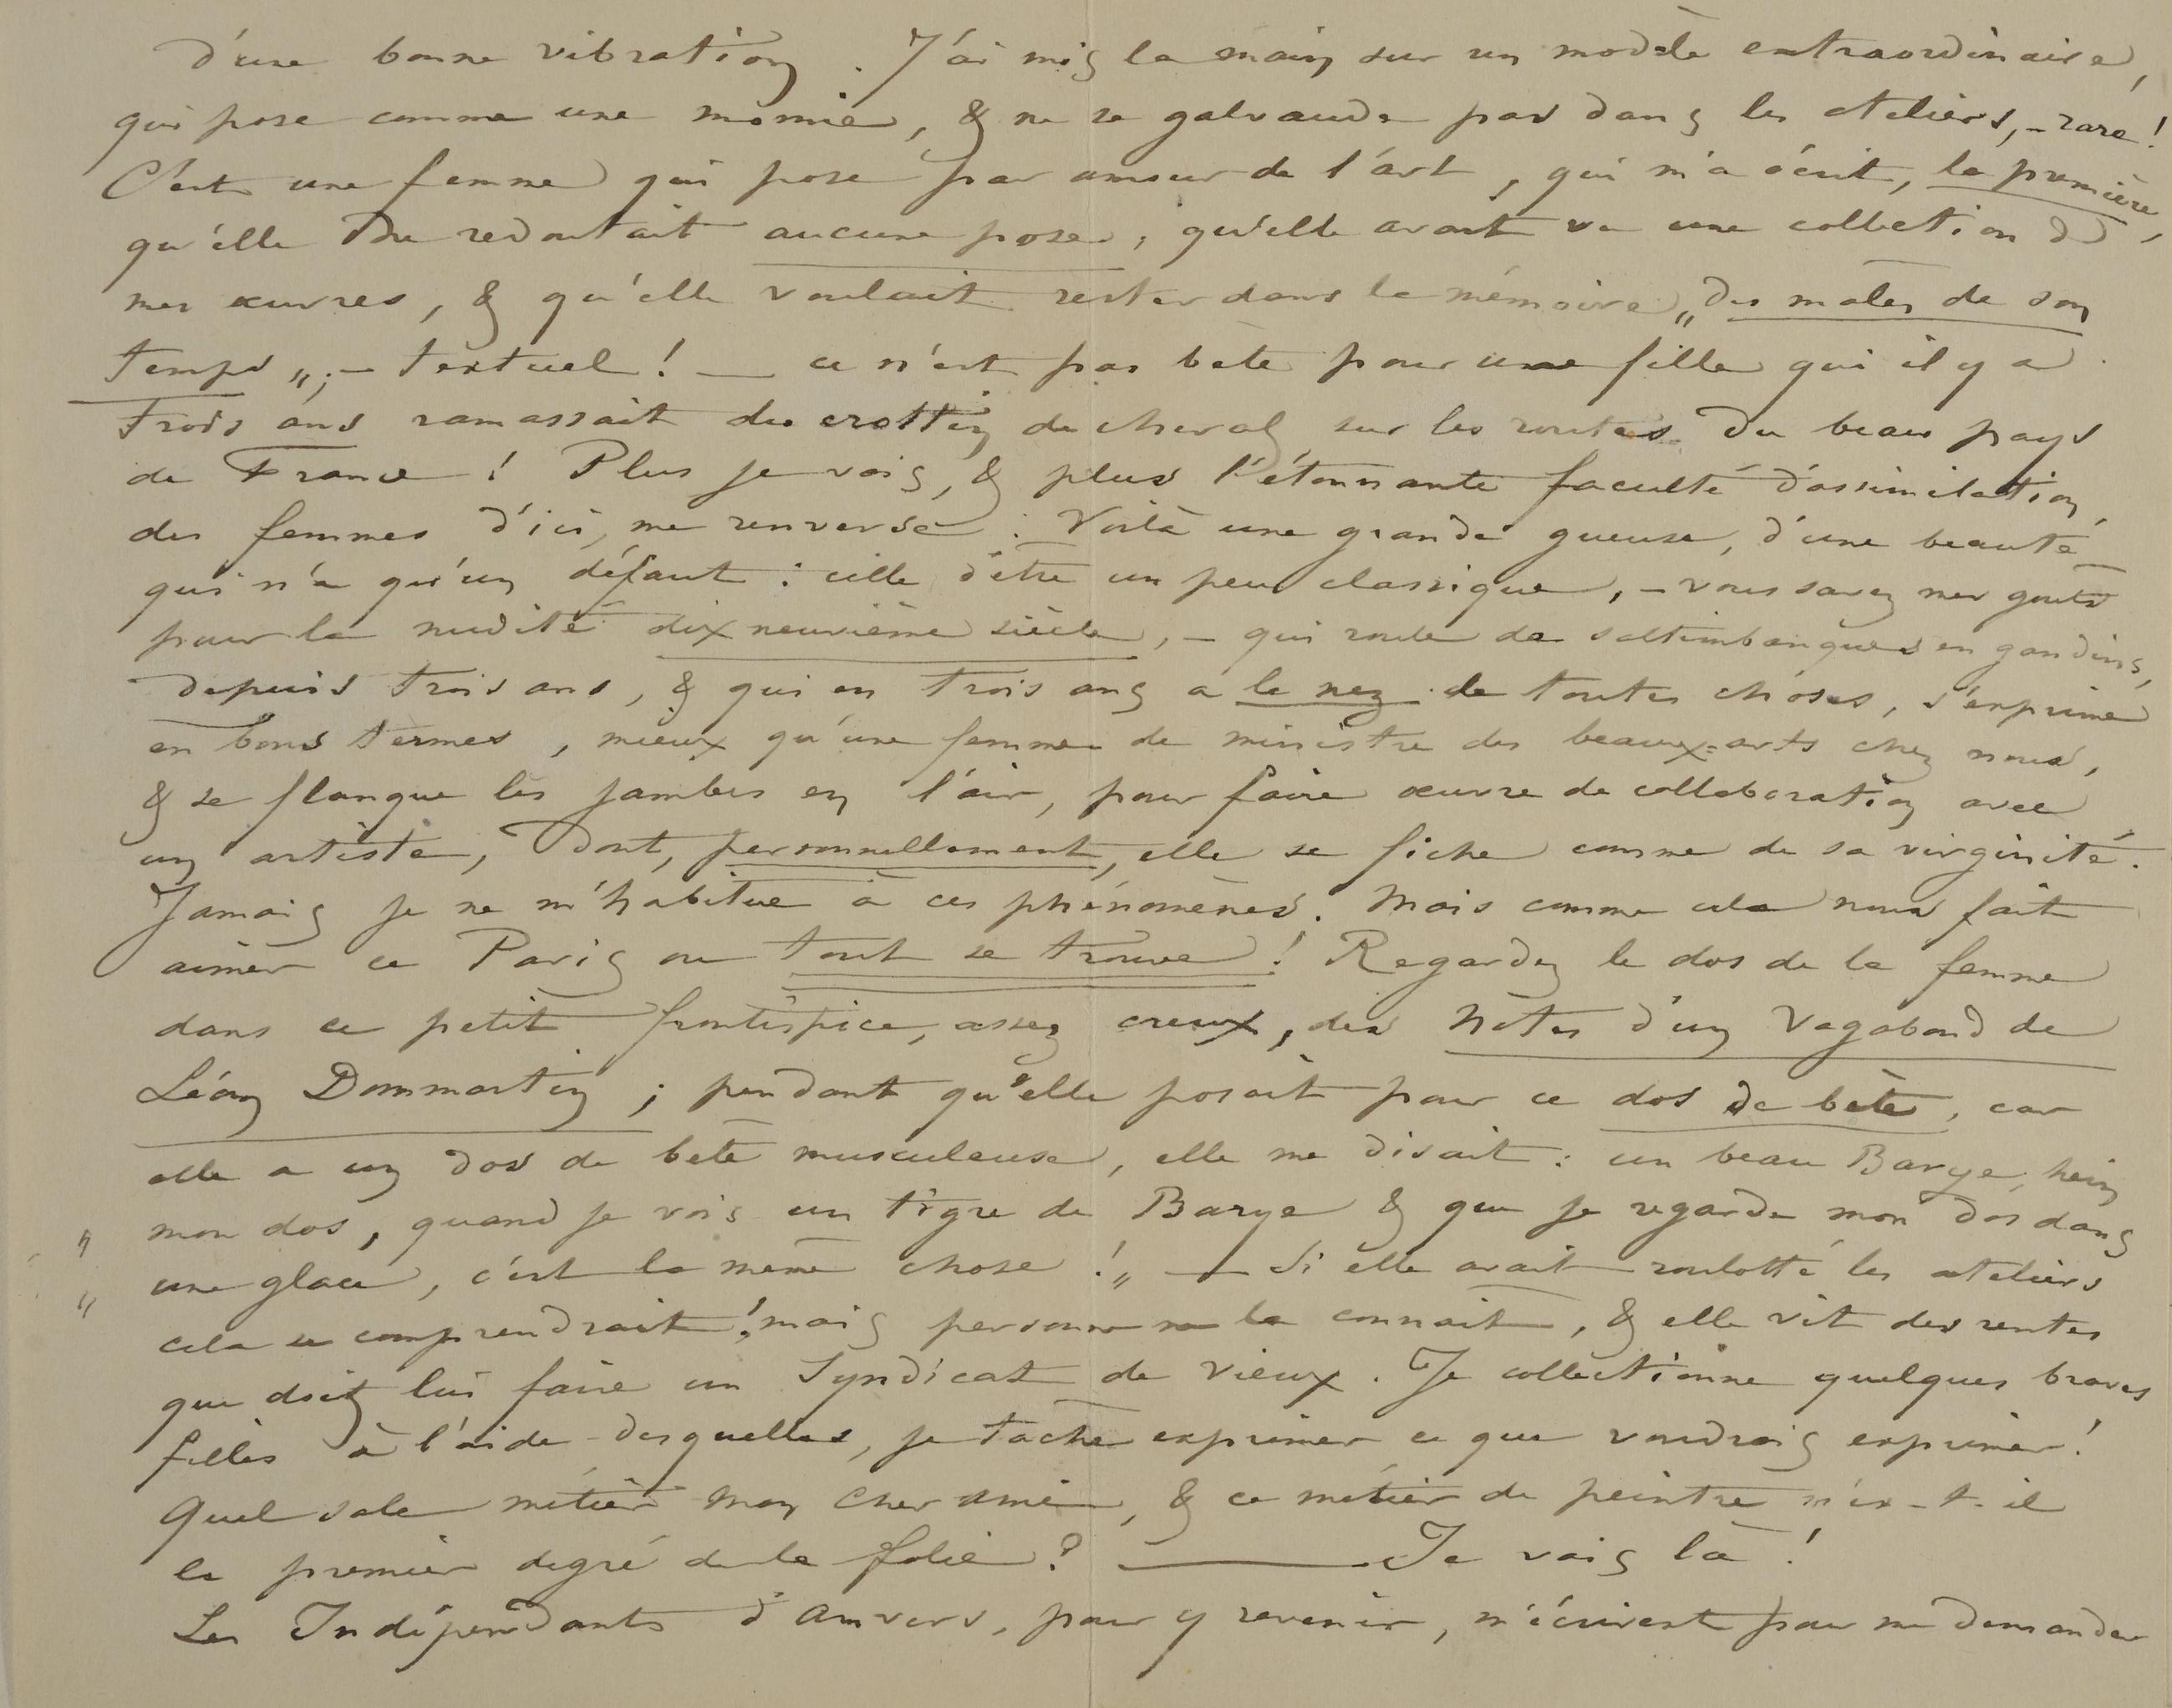 d'une bonne vibration. J'ai mis la main sur un modèle extraordinaire,
qui pose comme une momie, & ne se galvaude pas dans les ateliers, – rare!
C'est une femme qui pose par amour de l'art, qui m'a écrit, la première,
qu'elle ne redoutait aucune pose, qu'elle avait vu une collection de
mes œuvres, & qu'elle voulait rester dans la mémoire „des mâles de son
temps„, – textuel! — ce n'est pas bête pour une fille qui il y a
trois ans ramassait du crottin de cheval sur les routes du beau pays
de France! Plus je vois, & plus l'étonnante faculté d'assimilation
des femmes d'ici, me renverse. Voilà une grande gueuse, d'une beauté
qui n'a qu'un défaut : celle d'être un peu classique, – vous savez mes goûts
pour la nudité dix neuvième siècle, – qui roule de saltimbanques en gandins,
depuis trois ans, & qui en trois ans a le nez de toutes choses, s'exprime
en bons termes, mieux qu'une femme de ministre des beaux-arts chez nous,
& se flanque les jambes en l'air, pour faire œuvre de collaboration avec
un artiste, dont, personnellement, elle se fiche comme de sa virginité.
Jamais je ne m'habitue à ces phénomènes. Mais comme cela nous fait
aimer ce Paris ou tout se trouve! Regardez le dos de la femme
dans ce petit frontispice, assez creux, des Notes d'un Vagabond de
Léon Dommartin; pendant qu'elle posait pour ce dos de bête, car
elle a un dos de bête musculeuse, elle me disait : un beau Barye, hein
„ mon dos, quand je vois un tigre de Barye & que je regarde mon dos dans
„ une glace, c'est la même chose!„ — Si elle avait roulotté les ateliers
cela se comprendrait! mais personne ne la connait, & elle vit des rentes
que doit lui faire un Syndicat de vieux. Je collectionne quelques braves
filles à l'aide desquelles, je tâche exprimer ce que voudrais exprimer!
Quel sale métier mon cher ami, & ce métier de peintre n'es-t-il
le premier degré de la folie? ——— Je vais là!
Les Indépendants d'Anvers, pour y revenir, m'écrivent pour me demander